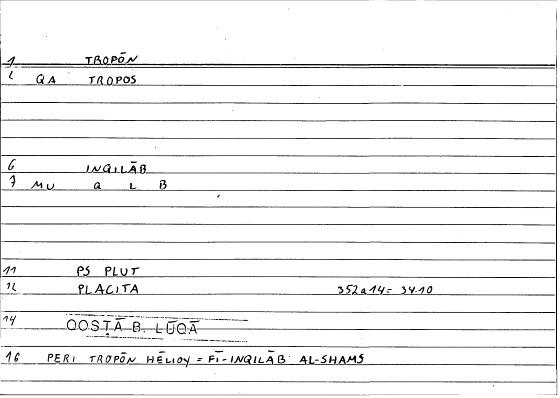 1 TROPŌN
2 QA TROPOS
6 INQILĀB
7 MU Q L B
11 PS PLUT
12 PLACITA 352a14 = 34.10
14 QOSṬĀ B. LŪQĀ
16 PERI TROPŌN HĒLIOY = FĪ-INQILĀB AL-SHAMS